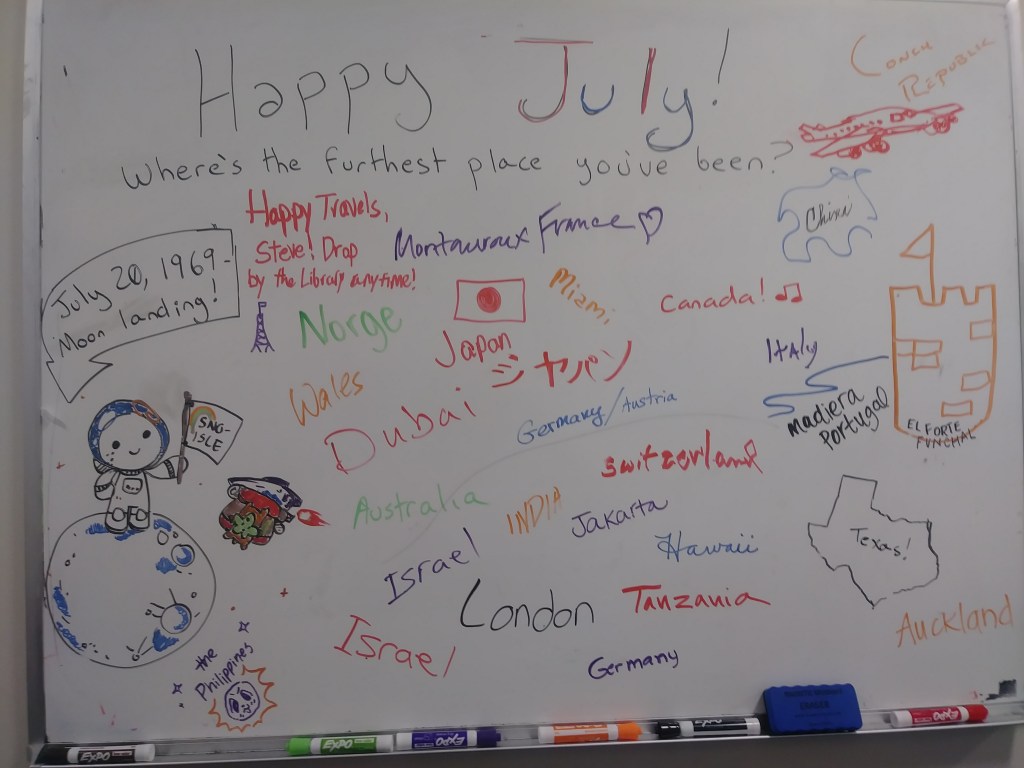 Happy July!
Where's the furthest place you've been?
CONCH
REPUBLIC
Happy Travels,
Steve! Drop
by the Library anytime!
Montauroux France
China
July 20, 1969-
Moon landing!
Norge
Japan
ジャパン
Miami
Canada!
Italy
Wales
Dubai
Germany/Austria
madiera
Portugal
EL FORTE
FUNCHAL
SNO-
ISLE
Switzerland
Australia
INDIA
Jakarta
Hawaii
Texas!
Israel
London
Tanzania
Auckland
Israel
Germany
the
Philippines
EXPO
EXPO
EXPO
EXPO
EXPO